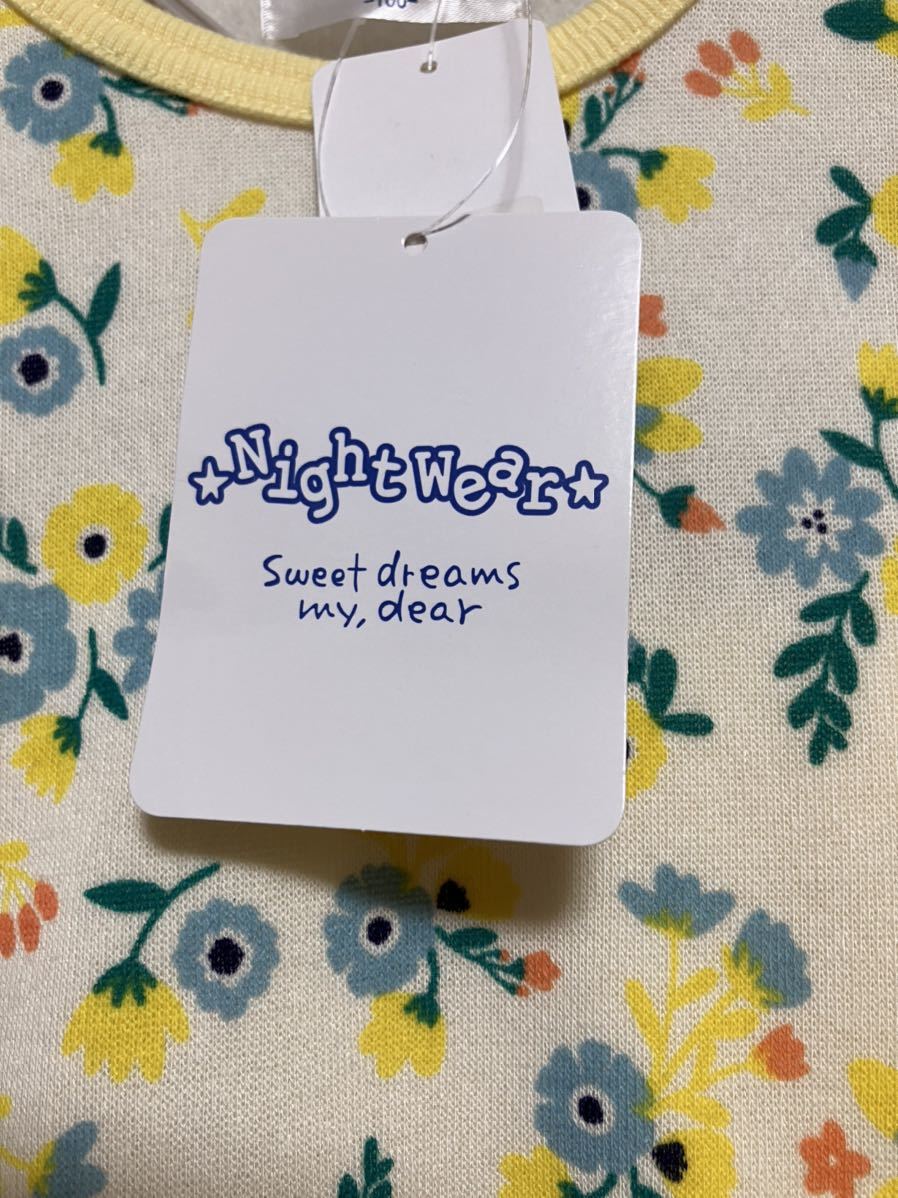 ☆Night Wear☆
Sweet dreams
my, dear